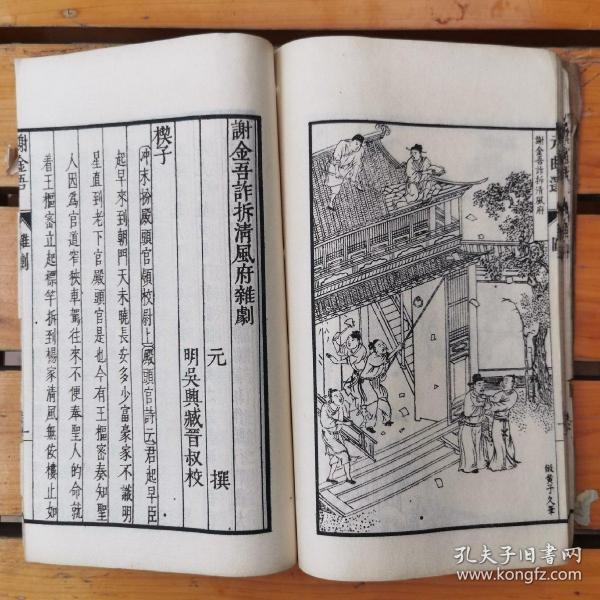 元曲選 圖
謝金吾詐拆清風府
倣黃子久筆
謝金吾詐拆清風府雜劇
元　　撰
明吳興臧晉叔校
楔子
冲末扮殿頭官領校尉上殿頭官詩云君起早臣
起早來到朝門天未曉長安多少富豪家不識明
星直到老下官殿頭官是也今有王樞密奏知聖
人因爲官道窄狹車駕往來不便奉聖人的命就
着王樞密立起標竿拆到楊家清風無佞樓止如
謝金吾
雜劇
一
孔夫子旧书网
www.kongfz.com